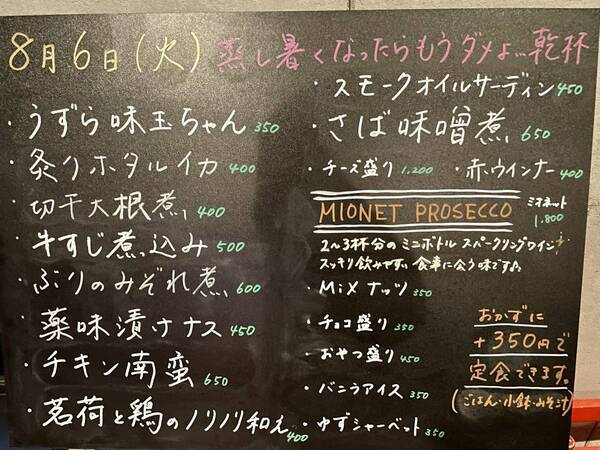 8月6日(火) 蒸し暑くなったらもうダメょ…乾杯
・うずら味玉ちゃん 350
・炙りホタルイカ 400
・切干大根煮 400
・牛すじ煮込み 500
・ぶりのみぞれ煮 600
・薬味漬けナス 450
・チキン南蛮 650
・茗荷と鶏のノリノリ和え 400
・スモークオイルサーディン 450
・さば味噌煮 650
・チーズ盛り 1,200 ・赤ウインナー 400
MIONET PROSECCO ミオネット 1.800
2~3杯分のミニボトル スパークリングワイン
スッキリ飲みやすい 食事に合う味です♪
・MiXナッツ 350
・チョコ盛り 350
・おやつ盛り 450
・バニラアイス 350
・ゆずシャーベット 350
おかずに
+350円で
定食できます。
(ごはん・小鉢・みそ汁)